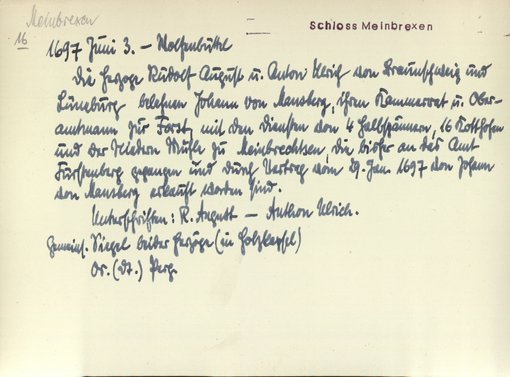 Meinbrexen
Schloss Meinbrexen
16
1697 Juni 3. – Wolfenbüttel
Die Herzoge Rudolf August u. Anton Ulrich von Braunschweig und
Lüneburg belehnen Johann von Mansberg, ihren Kammerrat u. Ober-
amtmann zur Forst, mit den Diensten von 4 Halbspännern, 16 Kotthöfen
und der Niedern Mühle zu Meinbrechtsen, die bisher an das Amt
Fürstenberg gegangen und durch Vertrag vom 29. Jan. 1697 von Johann
von Mansberg erkauft worden sind.
Unterschriften: R. August – Anthon Ulrich.
Gemeins. Siegel beider Herzöge (in Holzkapsel)
Or. (dt.) Perg.